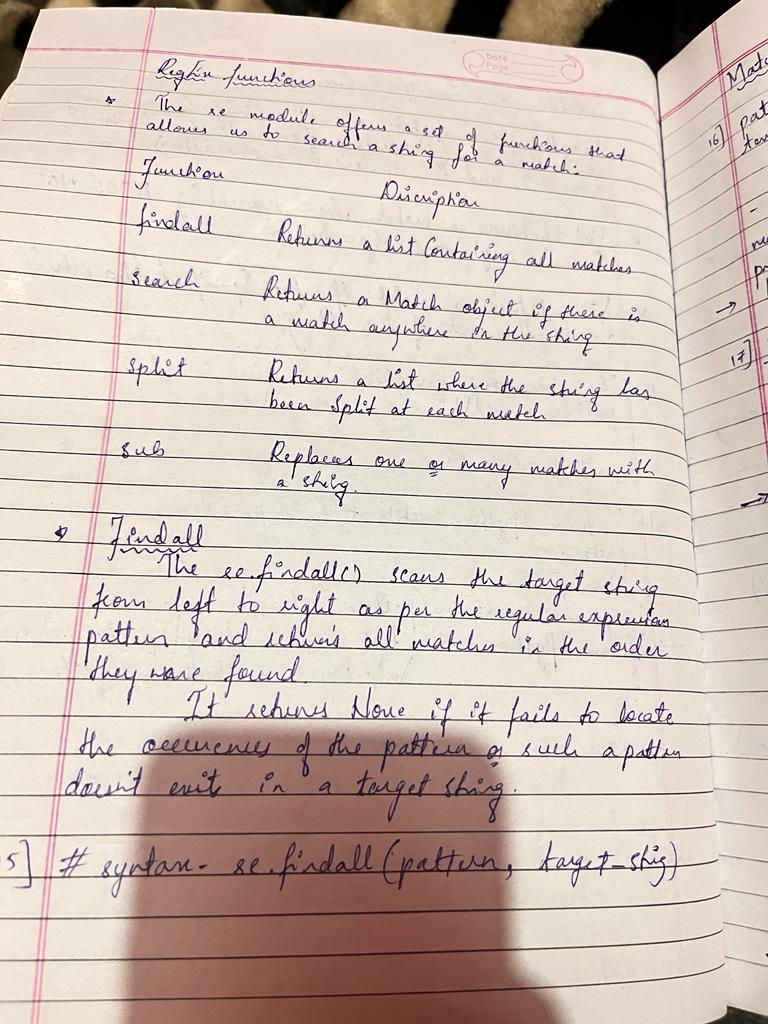 RegEx functions
Date
Page
* The re module offers a set of functions that
allows us to search a string for a match:
Function Discription
findall Returns a list Containing all matches
search Returns a Match object if there is
a match anywhere in the string
split Returns a list where the string has
been split at each match
sub Replaces one or many matches with
a string.
* Findall
The re.findall() scans the target string
from left to right as per the regular expression
pattern and returns all matches in the order
they were found
It returns None if it fails to locate
the occurences of the pattern or such a pattern
doesn't exits in a target string.
5] # syntax- re.findall(pattern, target_strig)
16]
17]